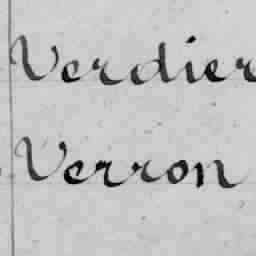 Verdier
Verron